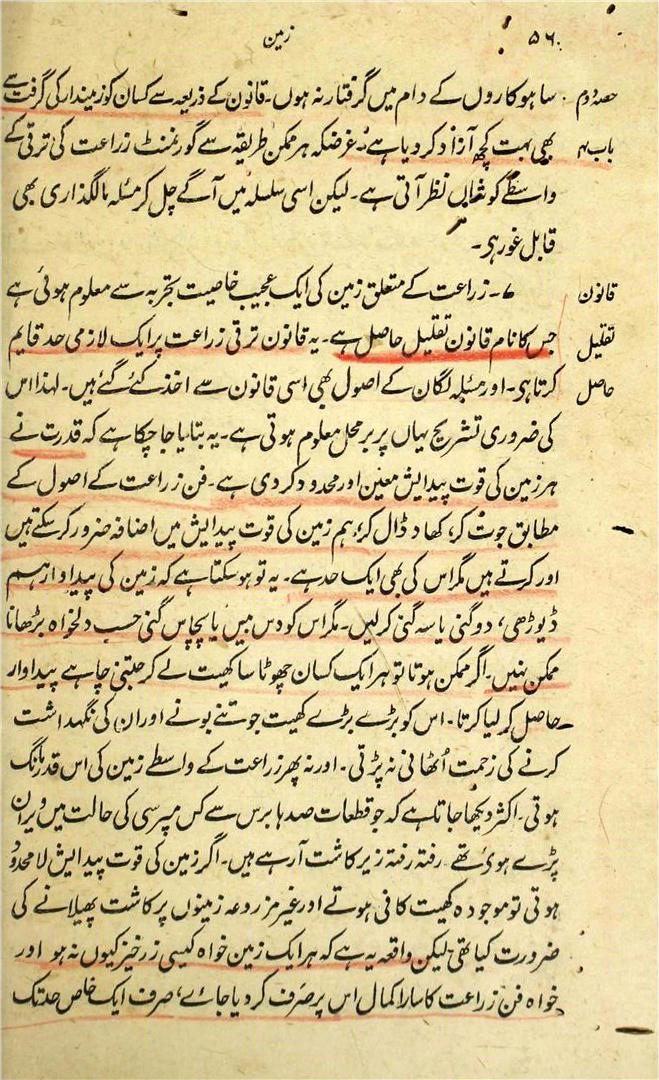 ۵۶
زمین
حصہ دوم ساہوکاروں کے دام میں گرفتار نہ ہوں۔ قانون کے ذریعہ سے کسان کو زمیندار کی گرفت سے
باب ۴ بھی بہت کچھ آزاد کر دیا ہے۔ غرضکہ ہر ممکن طریقہ سے گورنمنٹ زراعت کی ترقی کے
واسطے کوشاں نظر آتی ہے۔ لیکن اسی سلسلہ میں آگے چل کر مسئلہ مالگذاری بھی
قابل غور ہی۔
قانون ۷۔ زراعت کے متعلق زمین کی ایک عجیب خاصیت تجربہ سے معلوم ہوئی ہے
تقلیل جس کا نام قانون تقلیل حاصل ہے۔ یہ قانون ترقی زراعت پر ایک لازمی حد قایم
حاصل کرتا ہی۔ اور مسئلہ لگان کے اصول بھی اسی قانون سے اخذ کئے گئے ہیں۔ لہذا اس
کی ضروری تشریح یہاں پر برمحل معلوم ہوتی ہے۔ یہ بتایا جا چکا ہے کہ قدرت نے
ہر زمین کی قوت پیدایش معین اور محدود کر دی ہے۔ فن زراعت کے اصول کے
مطابق جوت کر، کھاد ڈال کر، ہم زمین کی قوت پیدایش میں اضافہ ضرور کر سکتے ہیں
اور کرتے ہیں مگر اس کی بھی ایک حد ہے۔ یہ تو ہو سکتا ہے کہ زمین کی پیداوار ہم
ڈیوڑھی، دوگنی یا سہ گنی کر لیں۔ مگر اس کو دس بیس یا پچاس گنی حسب دلخواہ بڑھانا
ممکن نہیں۔ اگر ممکن ہوتا تو ہر ایک کسان چھوٹا سا کھیت لے کر جتنی چاہے پیداوار
حاصل کر لیا کرتا۔ اس کو بڑے بڑے کھیت جوتنے بونے اور ان کی نگہداشت
کرنے کی زحمت اُٹھانی نہ پڑتی۔ اور نہ پھر زراعت کے واسطے زمین کی اس قدر مانگ
ہوتی۔ اکثر دیکھا جاتا ہے کہ جو قطعات صدہا برس سے کس مپرسی کی حالت میں ویران
پڑے ہوئے تھے رفتہ رفتہ زیر کاشت آرہے ہیں۔ اگر زمین کی قوت پیدایش لامحدود
ہوتی تو موجودہ کھیت کافی ہوتے اور غیر مزروعہ زمینوں پر کاشت پھیلانے کی
ضرورت کیا تھی لیکن واقعہ یہ ہے کہ ہر ایک زمین خواہ کیسی زرخیز کیوں نہ ہو اور
خواہ فن زراعت کا سارا کمال اس پر صَرف کر دیا جائے، صرف ایک خاص حد تک